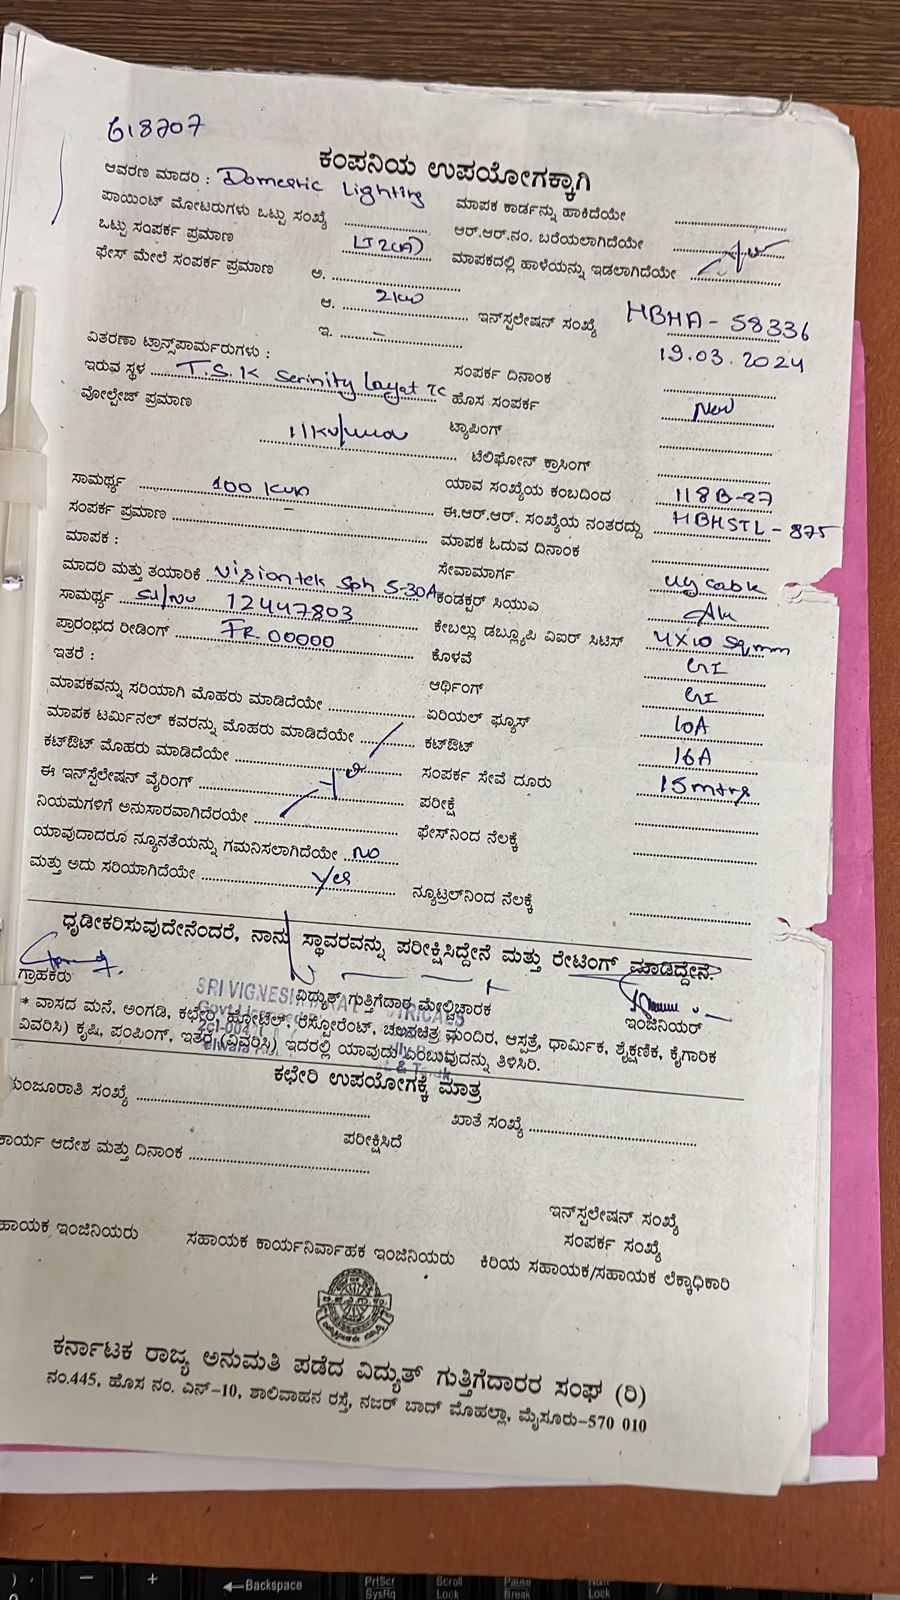 618707
ಕಂಪನಿಯ ಉಪಯೋಗಕ್ಕಾಗಿ
ಆವರಣ ಮಾದರಿ : Domestic Lighting
ಮಾಪಕ ಕಾರ್ಡನ್ನು ಹಾಕಿದೆಯೇ
ಪಾಯಿಂಟ್ ಮೋಟರುಗಳು ಒಟ್ಟು ಸಂಖ್ಯೆ
ಆರ್.ಆರ್.ನಂ. ಬರೆಯಲಾಗಿದೆಯೇ
ಒಟ್ಟು ಸಂಪರ್ಕ ಪ್ರಮಾಣ LT2(A)
ಮಾಪಕದಲ್ಲಿ ಹಾಳೆಯನ್ನು ಇಡಲಾಗಿದೆಯೇ
ಫೇಸ್ ಮೇಲೆ ಸಂಪರ್ಕ ಪ್ರಮಾಣ ಅ.
ಆ. 2KW
ಇನ್‌ಸ್ಟಲೇಷನ್ ಸಂಖ್ಯೆ HBHA - 58336
ಇ. -
19.03.2024
ವಿತರಣಾ ಟ್ರಾನ್ಸ್‌ಪಾರ್ಮರುಗಳು :
ಸಂಪರ್ಕ ದಿನಾಂಕ
ಇರುವ ಸ್ಥಳ T.S.K Serinity Layat TC
ಹೊಸ ಸಂಪರ್ಕ New
ವೋಲ್ಟೇಜ್ ಪ್ರಮಾಣ
ಟ್ಯಾಪಿಂಗ್
ಟೆಲಿಫೋನ್ ಕ್ರಾಸಿಂಗ್
ಸಾಮರ್ಥ್ಯ 100 KVA
ಯಾವ ಸಂಖ್ಯೆಯ ಕಂಬದಿಂದ 118B-27
ಸಂಪರ್ಕ ಪ್ರಮಾಣ
ಈ.ಆರ್.ಆರ್. ಸಂಖ್ಯೆಯ ನಂತರದ್ದು HBHSTL - 875
ಮಾಪಕ :
ಮಾಪಕ ಓದುವ ದಿನಾಂಕ
ಮಾದರಿ ಮತ್ತು ತಯಾರಿಕೆ Visiontek Sph 5-30A
ಸೇವಾಮಾರ್ಗ UG cable
ಸಾಮರ್ಥ್ಯ Sl/No 12447803
ಕಂಡಕ್ಟರ್ ಸಿಯುವಿ
ಪ್ರಾರಂಭದ ರೀಡಿಂಗ್ FR 00000
ಕೇಬಲ್ಲು ಡಬ್ಲ್ಯೂಪಿ ವಿಐರ್ ಸಿಟಿಸ್ 4x10 Sq.mm
ಇತರೆ :
ಕೊಳವೆ GI
ಮಾಪಕವನ್ನು ಸರಿಯಾಗಿ ಮೊಹರು ಮಾಡಿದೆಯೇ
ಆರ್ಥಿಂಗ್ GI
ಮಾಪಕ ಟರ್ಮಿನಲ್ ಕವರನ್ನು ಮೊಹರು ಮಾಡಿದೆಯೇ
ಏರಿಯಲ್ ಫ್ಯೂಸ್ 10A
ಕಟ್‌ಔಟ್ ಮೊಹರು ಮಾಡಿದೆಯೇ
ಕಟ್‌ಔಟ್ 16A
ಈ ಇನ್‌ಸ್ಟೆಲೇಷನ್ ವೈರಿಂಗ್
ಸಂಪರ್ಕ ಸೇವೆ ದೂರು 15mtrs
ನಿಯಮಗಳಿಗೆ ಅನುಸಾರವಾಗಿದೆರಯೇ
ಪರೀಕ್ಷೆ
ಯಾವುದಾದರೂ ನ್ಯೂನತೆಯನ್ನು ಗಮನಿಸಲಾಗಿದೆಯೇ No
ಫೇಸ್‌ನಿಂದ ನೆಲಕ್ಕೆ
ಮತ್ತು ಅದು ಸರಿಯಾಗಿದೆಯೇ Yes
ನ್ಯೂಟ್ರಲ್‌ನಿಂದ ನೆಲಕ್ಕೆ
ಧೃಡೀಕರಿಸುವುದೇನೆಂದರೆ, ನಾನು ಸ್ಥಾವರವನ್ನು ಪರೀಕ್ಷಿಸಿದ್ದೇನೆ ಮತ್ತು ರೇಟಿಂಗ್ ಮಾಡಿದ್ದೇನೆ.
ಗ್ರಾಹಕರು
ವಿದ್ಯುತ್ ಗುತ್ತಿಗೆದಾರ ಮೇಲ್ವಿಚಾರಕ
ಇಂಜಿನಿಯರ್
SRI VIGNESH
* ವಾಸದ ಮನೆ, ಅಂಗಡಿ, ಕಛೇರಿ, ಹೋಟೆಲ್, ರೆಸ್ಟೋರೆಂಟ್, ಚಲನಚಿತ್ರ ಮಂದಿರ, ಆಸ್ಪತ್ರೆ, ಧಾರ್ಮಿಕ, ಶೈಕ್ಷಣಿಕ, ಕೈಗಾರಿಕ
ವಿವರಿಸಿ) ಕೃಷಿ, ಪಂಪಿಂಗ್, ಇತರೆ (ವಿವರಿಸಿ) ಇದರಲ್ಲಿ ಯಾವುದು ಎಂಬುವುದನ್ನು ತಿಳಿಸಿರಿ.
ಕಛೇರಿ ಉಪಯೋಗಕ್ಕೆ ಮಾತ್ರ
ಮಂಜೂರಾತಿ ಸಂಖ್ಯೆ
ಖಾತೆ ಸಂಖ್ಯೆ
ಪರೀಕ್ಷಿಸಿದೆ
ಕಾರ್ಯ ಆದೇಶ ಮತ್ತು ದಿನಾಂಕ
ಇನ್‌ಸ್ಟಲೇಷನ್ ಸಂಖ್ಯೆ
ಸಂಪರ್ಕ ಸಂಖ್ಯೆ
ಸಹಾಯಕ ಇಂಜಿನಿಯರು
ಸಹಾಯಕ ಕಾರ್ಯನಿರ್ವಾಹಕ ಇಂಜಿನಿಯರು
ಕಿರಿಯ ಸಹಾಯಕ/ಸಹಾಯಕ ಲೆಕ್ಕಾಧಿಕಾರಿ
ಕರ್ನಾಟಕ ರಾಜ್ಯ ಅನುಮತಿ ಪಡೆದ ವಿದ್ಯುತ್ ಗುತ್ತಿಗೆದಾರರ ಸಂಘ (ರಿ)
ನಂ.445, ಹೊಸ ನಂ. ಎನ್-10, ಶಾಲಿವಾಹನ ರಸ್ತೆ, ನಜರ್ ಬಾದ್ ಮೊಹಲ್ಲಾ, ಮೈಸೂರು-570 010
Backspace
PrtScr
SysRq
Scroll
Lock
Pause
Break
Num
Lock